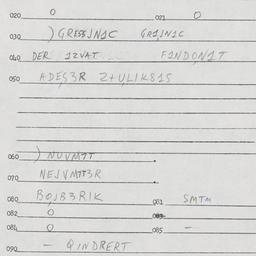 020 0 021 0
030 ) GRESSJN1C GR1JN1C
040 DER 12VAT F1NDON1T
050 ADES3R 2+ULIKS1S
060 ) NUVMTT
070 NEJVMTT3R
080 BOJB3RIK 081 SMTM
082 0 083
084 0 085 -
090 - QINDRERT